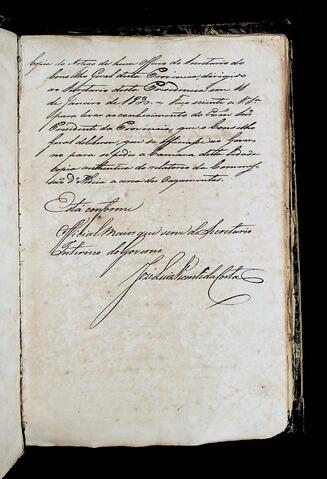 Copia do Artigo de hum Officio do Secretario do
Conselho Geral desta Provincia, dirigido
ao Secretario desta Presidencia em 11
de Janeiro de 1830 = Faço sciente a V. Sª
para levar ao conhecimento do Exmo Snr
Presidente da Provincia que o Conselho
Geral deliberou que se officiasse ao Gover
no para se pedir a Camara desta Cidade
Copia authentica do relatorio da Commis
são a cerca dos Orçamentos.
Está conforme
Official Maior que serve de Secretario
Interino do Governo
José Luiz da Costa